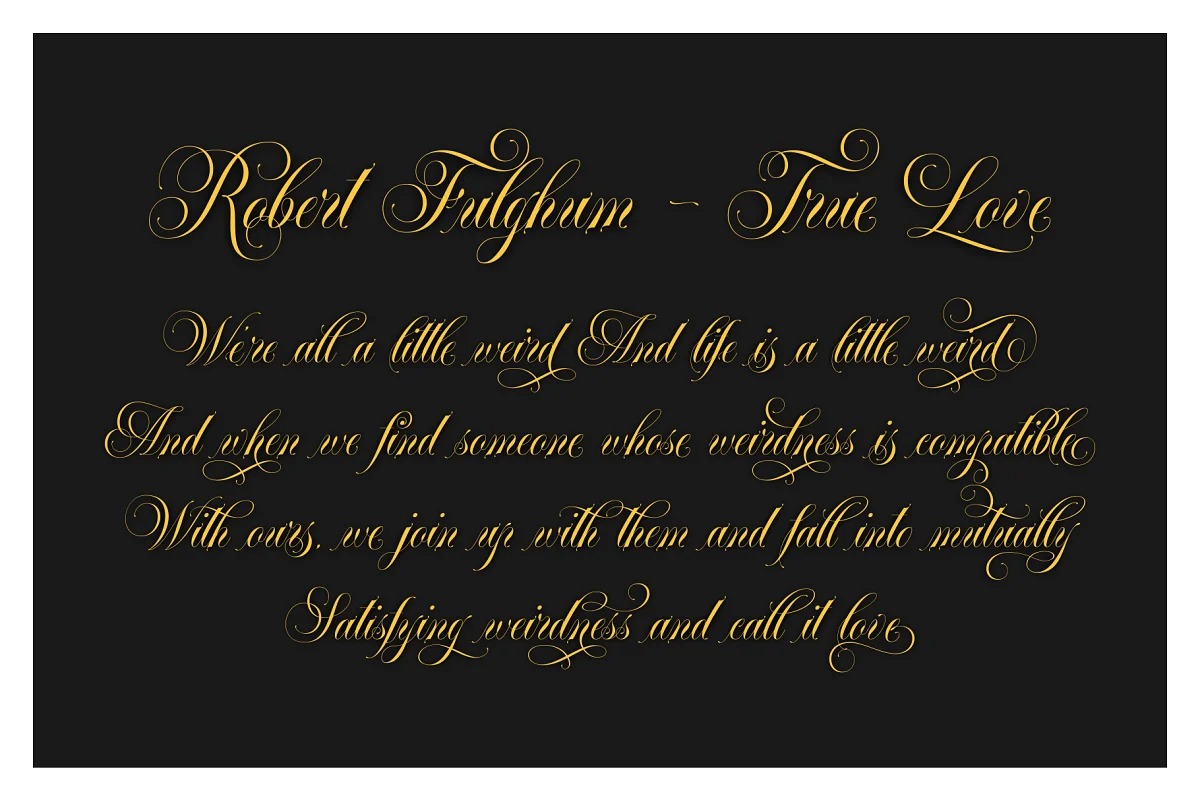 Robert Fulghum - True Love
We're all a little weird And life is a little weird
And when we find someone whose weirdness is compatible
With ours, we join up with them and fall into mutually
Satisfying weirdness and call it love